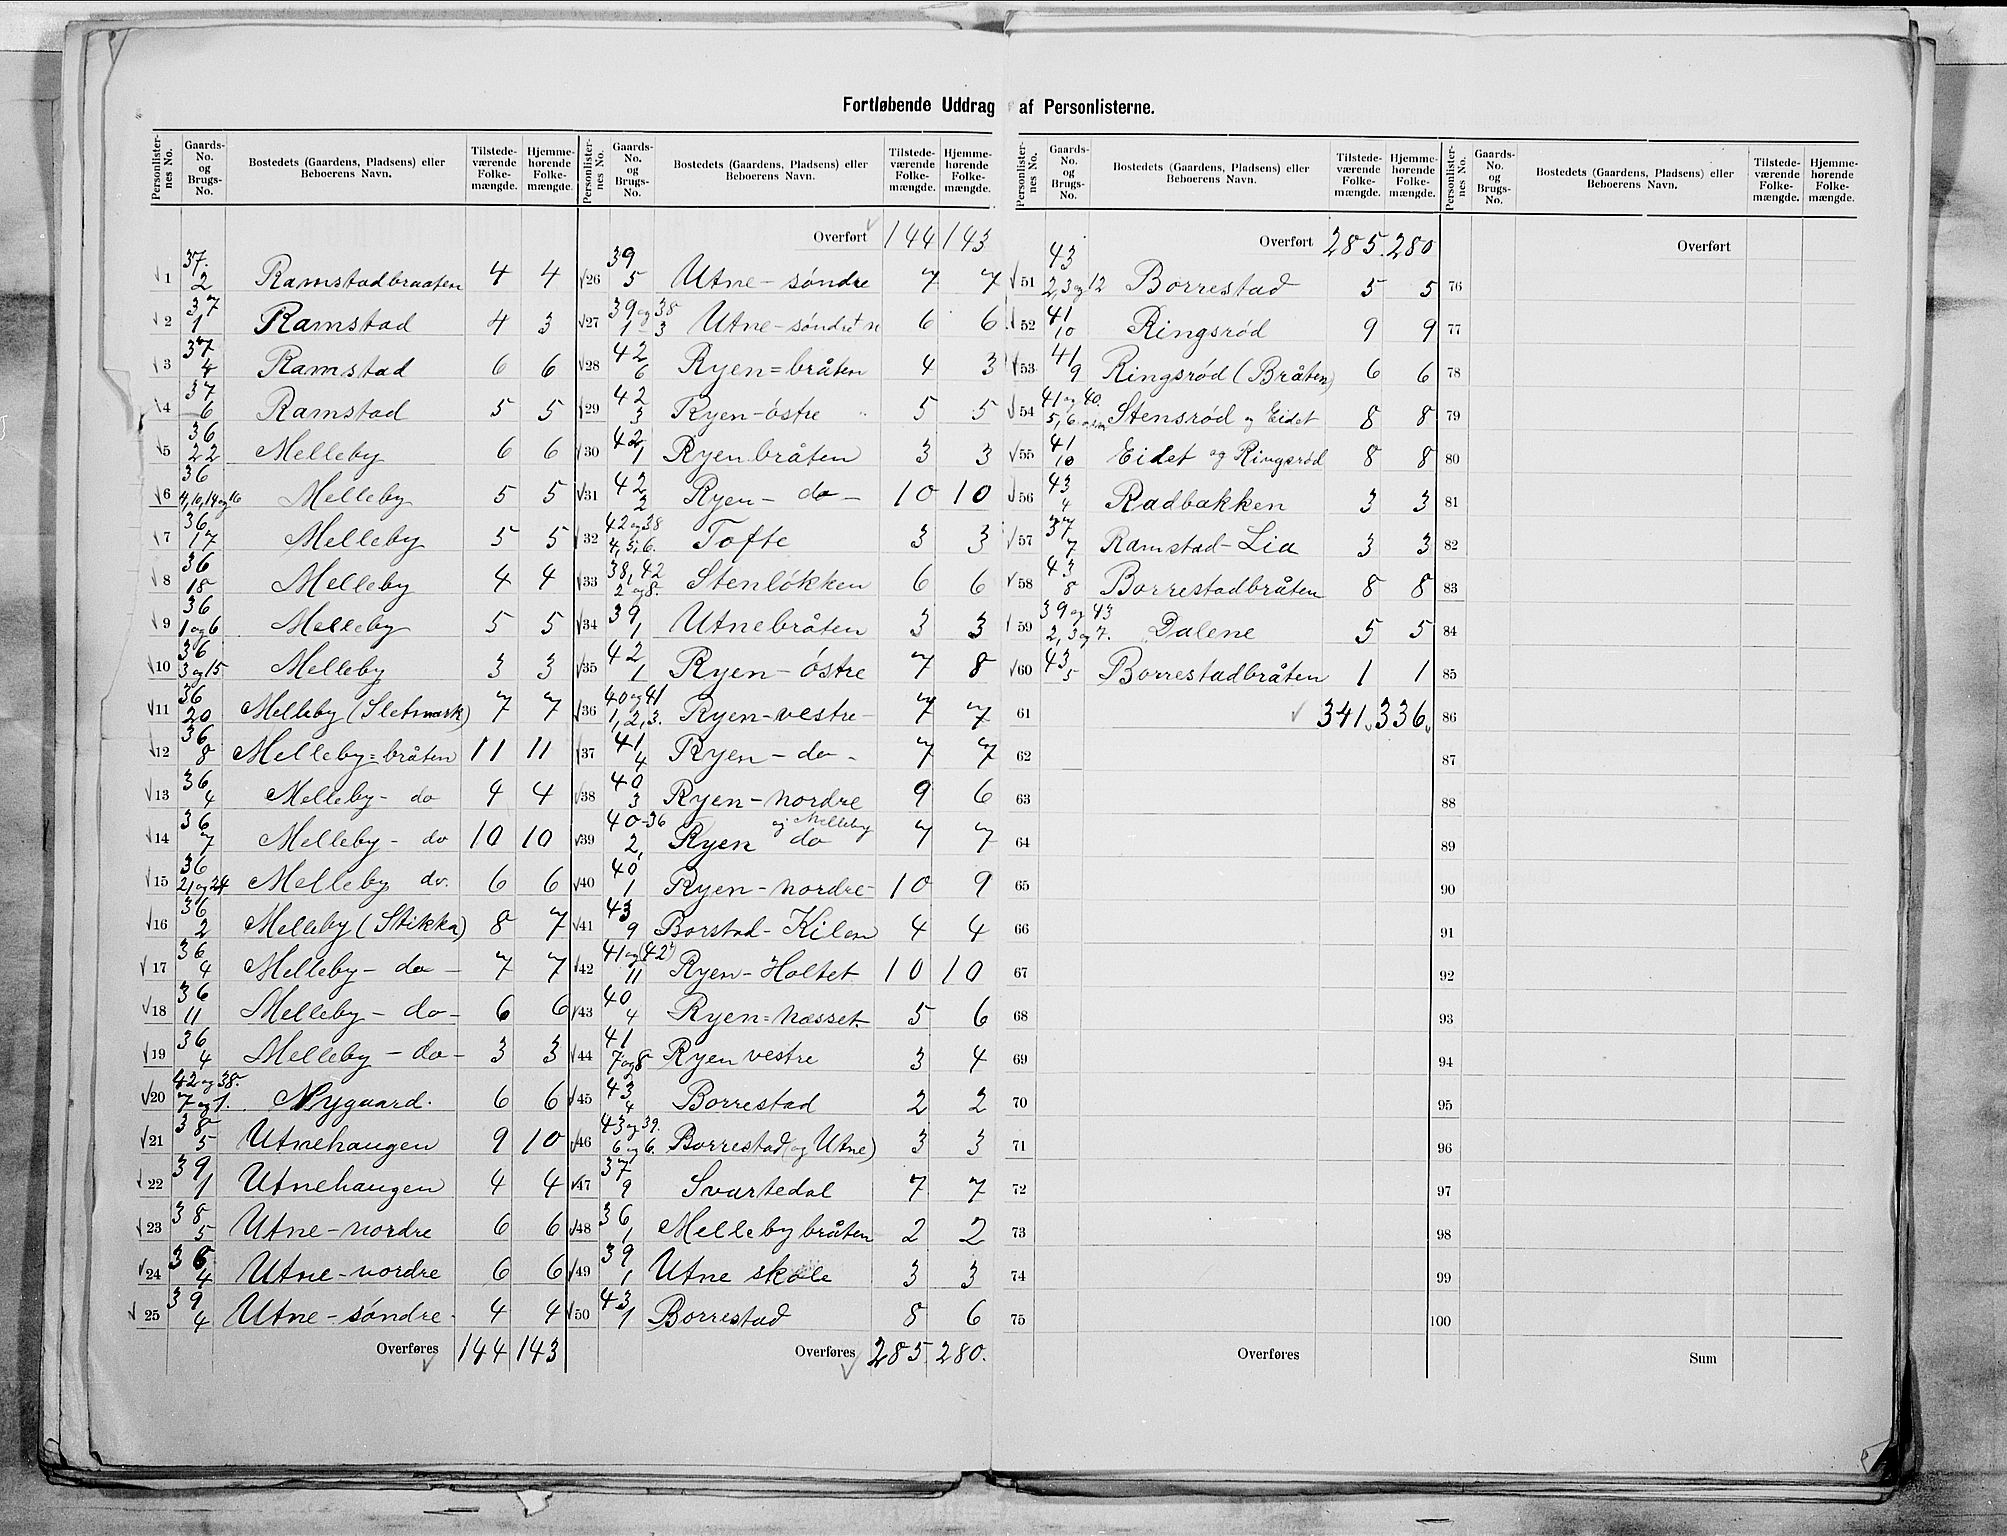 Fortløbende Uddrag af Personlisterne.
Personlister-nes No. | Gaards-No. og Brugs-No. | Bostedets (Gaardens, Pladsens) eller Beboerens Navn. | Tilstede-værende Folke-mængde. | Hjemme-hørende Folke-mængde.
1 | 37. 2 | Ramstadbraaten | 4 | 4
2 | 37 1 | Ramstad | 4 | 3
3 | 37 4 | Ramstad | 6 | 6
4 | 37 6 | Ramstad | 5 | 5
5 | 36 22 | Melleby | 6 | 6
6 | 36 4, 10, 14 og 16 | Melleby | 5 | 5
7 | 36 17 | Melleby | 5 | 5
8 | 36 18 | Melleby | 4 | 4
9 | 36 1 og 6 | Melleby | 5 | 5
10 | 36 3 og 15 | Melleby | 3 | 3
11 | 36 20 | Melleby (Sletmark) | 7 | 7
12 | 36 8 | Melleby=bråten | 11 | 11
13 | 36 4 | Melleby- do | 4 | 4
14 | 36 7 | Melleby - do | 10 | 10
15 | 36 21 og 24 | Melleby do. | 6 | 6
16 | 36 2 | Melleby (Stikka) | 8 | 7
17 | 36 4 | Melleby - do - | 7 | 7
18 | 36 11 | Melleby - do - | 6 | 6
19 | 36 4 | Melleby - do - | 3 | 3
20 | 42 og 38. 7 og 1. | Nygaard. | 6 | 6
21 | 38 5 | Utnehaugen | 9 | 10
22 | 39 1 | Utnehaugen | 4 | 4
23 | 38 5 | Utne-nordre | 6 | 6
24 | 38 4 | Utne-nordre | 6 | 6
25 | 39 4 | Utne-søndre | 4 | 4
Overføres 144 143
Personlister-nes No. | Gaards-No. og Brugs-No. | Bostedets (Gaardens, Pladsens) eller Beboerens Navn. | Tilstede-værende Folke-mængde. | Hjemme-hørende Folke-mængde.
Overført 144 143
26 | 39 5 | Utne-søndre | 7 | 7
27 | 39 og 38 1 - 3 | Utne-søndre | 6 | 6
28 | 42 6 | Ryen=bråten | 4 | 3
29 | 42 3 | Ryen-östre | 5 | 5
30 | 42 1 | Ryen bråten | 3 | 3
31 | 42 2 | Ryen - do - | 10 | 10
32 | 42 og 38 4, 5, 6. | Tofte | 3 | 3
33 | 38, 42 2 og 8. | Stenlökken | 6 | 6
34 | 39 1 | Utnebråten | 3 | 3
35 | 42 1 | Ryen - östre | 7 | 8
36 | 40 og 41 1, 2, 3. | Ryen-vestre- | 7 | 7
37 | 41 4 | Ryen - do - | 7 | 7
38 | 40 3 | Ryen-nordre | 9 | 6
39 | 40-36 2, | Ryen do og Melleby | 7 | 7
40 | 40, 1 | Ryen-nordre- | 10 | 9
41 | 43 9 | Borstad-Kilen | 4 | 4
42 | 41 og (42) 11 | Ryen-Holtet | 10 | 10
43 | 40 4 | Ryen=næsset. | 5 | 6
44 | 41 7 og 8 | Ryen vestre | 3 | 4
45 | 43 4 | Borrestad | 2 | 2
46 | 43 og 39. 6 og 6. | Borrestad (og Utne) | 3 | 3
47 | 37 9 | Svartedal | 7 | 7
48 | 36 1 | Melleby bråten | 2 | 2
49 | 39 1 | Utne skole | 3 | 3
50 | 43 1 | Borrestad | 8 | 6
Overføres 285 280.
Personlister-nes No. | Gaards-No. og Brugs-No. | Bostedets (Gaardens, Pladsens) eller Beboerens Navn. | Tilstede-værende Folke-mængde. | Hjemme-hørende Folke-mængde.
Overført 285. 280
51 | 43 2, 3 og 12 | Borrestad | 5 | 5
52 | 41 10 | Ringsrød | 9 | 9
53 | 41 9 | Ringsrød (Bråten) | 6 | 6
54 | 41 og 40. 5, 6 | Stensrød og Eidet | 8 | 8
55 | 41 10 | Eidet og Ringsrød | 8 | 8
56 | 43 4 | Radbakken | 3 | 3
57 | 37 7 | Ramstad-Lia | 3 | 3
58 | 43 8 | Borrestadbråten | 8 | 8
59 | 39 og 43 2, 3 og 7. | Dalene | 5 | 5
60 | 43 5 | Borrestadbråten | 1 | 1
61 341. 336.
62
63
64
65
66
67
68
69
70
71
72
73
74
75
Overføres
Personlister-nes No. | Gaards-No. og Brugs-No. | Bostedets (Gaardens, Pladsens) eller Beboerens Navn. | Tilstede-værende Folke-mængde. | Hjemme-hørende Folke-mængde.
Overført
76
77
78
79
80
81
82
83
84
85
86
87
88
89
90
91
92
93
94
95
96
97
98
99
100
Sum